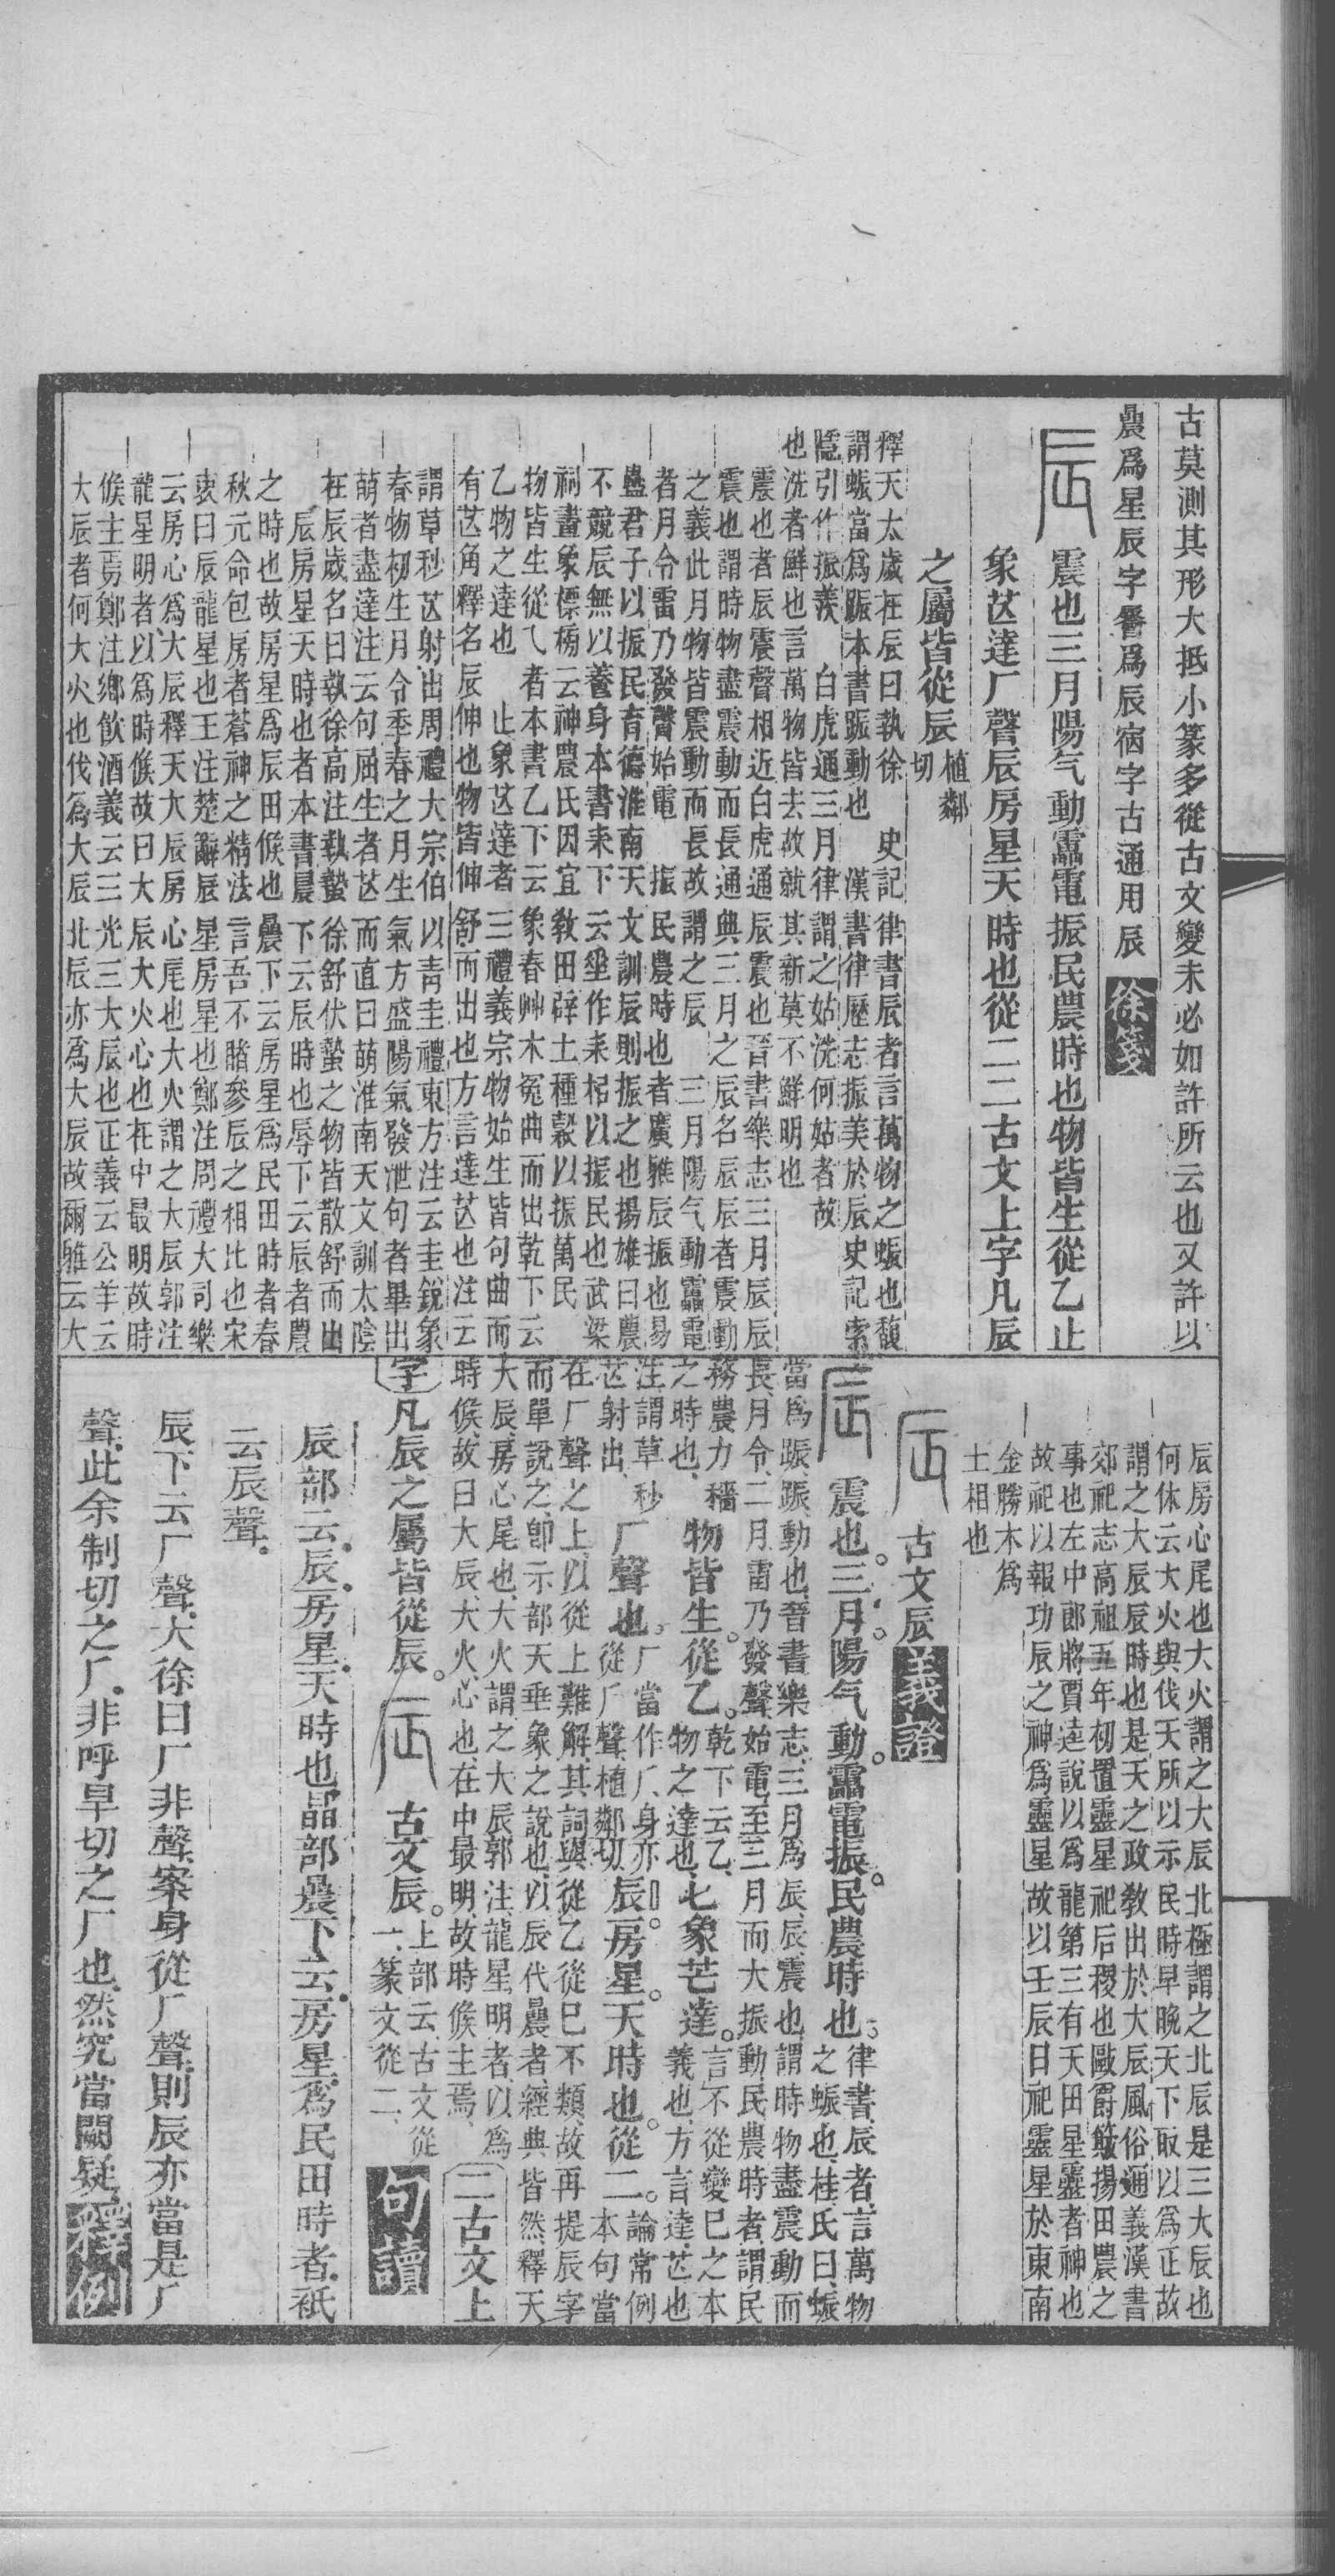 古莫測其形大抵小篆多從古文變未必如許所云也又許以
農爲星辰字醫爲辰宿字古通用辰 徐箋
震也三月陽气動靁電振民農時也物皆生從乙止
象芒達厂聲辰房星天時也從二二古文上字凡辰
之屬皆從辰 植鄰切
釋天太歲在辰曰執徐 史記律書辰者言萬物之蜄也馥
謂蜄當爲蹍本書蹍動也 漢書律歷志振美於辰史記索
隱引作振羨 白虎通三月律謂之姑洗何姑者故
也洗者鮮也言萬物皆去故就其新莫不鮮明也
震也者辰震聲相近白虎通辰震也晉書樂志三月辰辰
震也謂時物盡震動而長通典三月之辰名辰辰者震動
之義此月物皆震動而長故謂之辰 三月陽气動靁電
者月令雷乃發聲始電 振民農時也者廣雅辰振也易
蠱君子以振民育德淮南天文訓辰則振之也揚雄曰農
不競辰無以養身本書耒下云垂作耒梠以振民也武梁
祠畫象標榜云神農氏因宜敎田辟土種穀以振萬民
物皆生從乀者本書乙下云象春艸木冤曲而出乾下云
乙物之達也 止象芒達者三禮義宗物始生皆句曲而
有芒角釋名辰伸也物皆伸舒而出也方言達芒也注云
謂草秒芒射出周禮大宗伯以靑圭禮東方注云圭銳象
春物初生月令季春之月生氣方盛陽氣發泄句者畢出
萌者盡達注云句屈生者芒而直曰萌淮南天文訓太陰
在辰歲名曰執徐高注執蟄徐舒伏蟄之物皆散舒而出
辰房星天時也者本書晨下云辰時也辱下云辰者農
之時也故房星爲辰田候也農下云房星爲民田時者春
秋元命包房者蒼神之精法言吾不睹參辰之相比也宋
衷曰辰龍星也王注楚辭辰星房星也鄭注周禮大司樂
云房心爲大辰釋天大辰房心尾也大火謂之大辰郭注
龍星明者以爲時候故曰大辰大火心也在中最明故時
候主焉鄭注鄉飮酒義云三光三大辰也正義云公羊云
大辰者何大火也伐爲大辰北辰亦爲大辰故爾雅云大
辰房心尾也大火謂之大辰北極謂之北辰是三大辰也
何休云大火與伐天所以示民時早晚天下取以爲正故
謂之大辰辰時也是天之政敎出於大辰風俗通義漢書
郊祀志高祖五年初置靈星祀后稷也毆爵簸揚田農之
事也左中郞將賈逵說以爲龍第三有天田星靈者神也
故祀以報功辰之神爲靈星故以壬辰日祀靈星於東南
金勝木爲
土相也
古文辰 義證
震也。三月。陽气動。靁電振。民農時也。律書、辰者、言萬物
之蜄也、桂氏曰、蜄
當爲蹍、蹍、動也、晉書樂志、三月爲辰、辰、震也、謂時物盡震動而
長、月令、二月雷乃發聲、始電、至三月而大振動、民農時者、謂民
務農力穡
之時也、物皆生。從乙。乾下云、乙、
物之達也、匕象芒達。言不從變巳之本
義也、方言、達、芒也、
注、謂草秒
芒射出、厂聲也。厂當作𠂆、身亦
從𠂆聲、植鄰切、辰、房星。天時也。從二。論常例
本句當
在厂聲之上、以從上難解、其詞與從乙從巳不類、故再提辰字
而單說之、卽示部天垂象之說也、以辰代晨者、經典皆然、釋天、
大辰、房心尾也、大火謂之大辰、郭注、龍星、明者、以爲
時候、故曰大辰、大火、心也、在中最明、故時候主焉、二古文上
字凡辰之屬皆從辰。 古文辰。上部云、古文從
一、篆文從二、 句讀
辰部云、辰、房星、天時也、晶部曟下云、房星、爲民田時者、祇
云辰聲、
辰下云厂聲、大徐曰厂非聲、案身從厂聲、則辰亦當是厂
聲、此余制切之厂、非呼旱切之厂也、然究當闕疑、 釋例